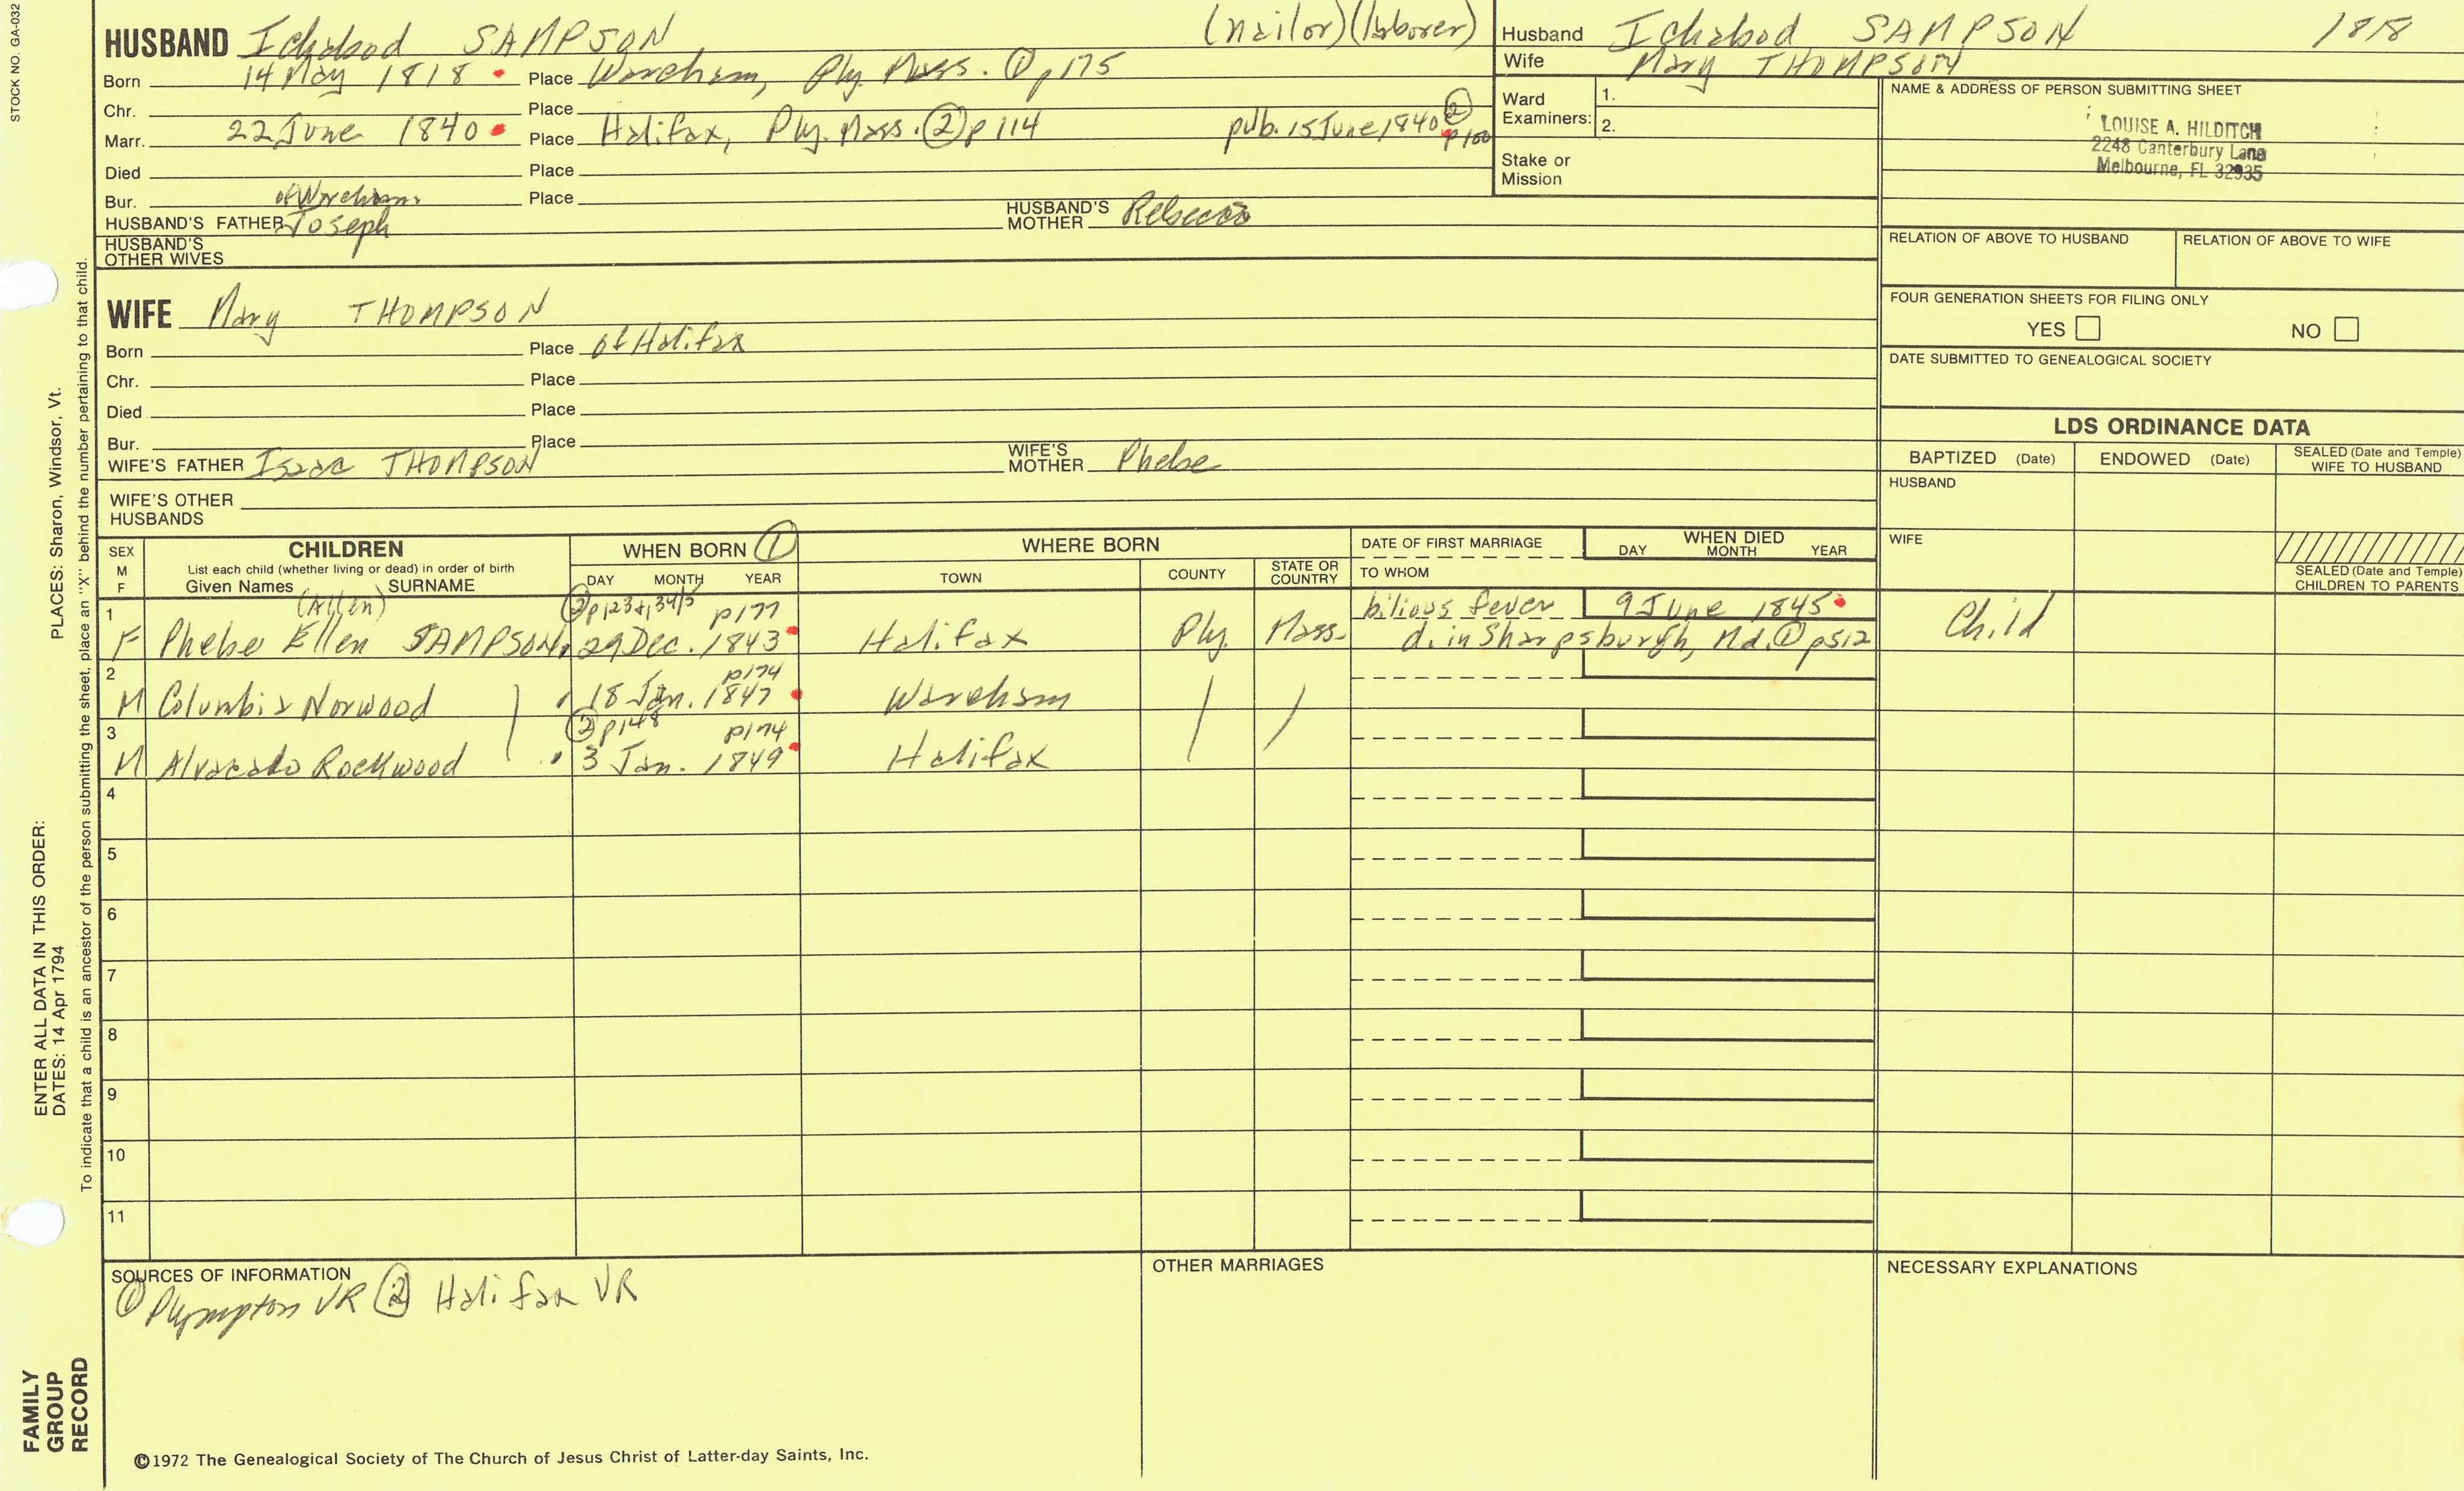 STOCK NO. GA-032
HUSBAND Ichabod SAMPSON (nailor)(laborer)
Born 14 May 1818 Place Wareham, Ply. Mass. ① p175
Chr. Place
Marr. 22 June 1840 Place Halifax, Ply. Mass. ② p114 pub. 15 June 1840 ② p100
Died Place
Bur. of Wareham Place
HUSBAND'S FATHER Joseph HUSBAND'S MOTHER Rebecca
HUSBAND'S OTHER WIVES
Husband Ichabod SAMPSON 1818
Wife Mary THOMPSON
Ward Examiners: 1.
2.
Stake or Mission
NAME & ADDRESS OF PERSON SUBMITTING SHEET
LOUISE A. HILDITCH
2248 Canterbury Lane
Melbourne, FL 32935
RELATION OF ABOVE TO HUSBAND RELATION OF ABOVE TO WIFE
FOUR GENERATION SHEETS FOR FILING ONLY
YES NO
DATE SUBMITTED TO GENEALOGICAL SOCIETY
WIFE Mary THOMPSON
Born Place of Halifax
Chr. Place
Died Place
Bur. Place
WIFE'S FATHER Isaac THOMPSON WIFE'S MOTHER Phebe
WIFE'S OTHER HUSBANDS
LDS ORDINANCE DATA
BAPTIZED (Date) ENDOWED (Date) SEALED (Date and Temple) WIFE TO HUSBAND
HUSBAND
WIFE
SEALED (Date and Temple) CHILDREN TO PARENTS
SEX M F
CHILDREN
List each child (whether living or dead) in order of birth
Given Names SURNAME
WHEN BORN ①
DAY MONTH YEAR
WHERE BORN
TOWN COUNTY STATE OR COUNTRY
DATE OF FIRST MARRIAGE
TO WHOM
WHEN DIED
DAY MONTH YEAR
1 (Allen) ② p123+ p177 bilious fever 9 June 1845
F Phebe Ellen SAMPSON 29 Dec. 1843 Halifax Ply. Mass. d. in Sharpsburgh, Md. ① p512 Child
2 p174
M Columbia Norwood 18 Jan. 1847 Wareham
3 ② p148 p174
M Alvarado Rockwood 3 Jan. 1849 Halifax
4
5
6
7
8
9
10
11
SOURCES OF INFORMATION
① Plympton VR ② Halifax VR
OTHER MARRIAGES
NECESSARY EXPLANATIONS
©1972 The Genealogical Society of The Church of Jesus Christ of Latter-day Saints, Inc.
ENTER ALL DATA IN THIS ORDER:
DATES: 14 Apr 1794
PLACES: Sharon, Windsor, Vt.
To indicate that a child is an ancestor of the person submitting the sheet, place an "X" behind the number pertaining to that child.
FAMILY
GROUP
RECORD